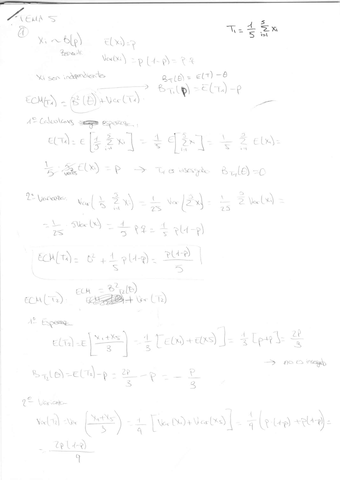 TEMA 5
T₁ = 1/5 Σ xi
① xi ~ B(p) E(xi) = p
Var(xi) = p(1-p) = pq
xi son independientes
B_T(θ) = E(T) - θ
B_T₁(p) = E(T₁) - p
ECM(T₁) = B²(θ) + Var(T₁)
1º Calculamos esperanza
E(T₁) = E[1/5 Σ xi] = 1/5 E[Σ xi] = 1/5 Σ E(xi) =
E(xi) = p → T₁ es insesgado B_T₁(θ) = 0
2º Varianza Var(1/5 Σ xi) = 1/25 Var(Σ xi) = 1/25 Σ Var(xi) =
= 1/25 5Var(x) = 1/5 pq = 1/5 p(1-p)
ECM(T₁) = 0² + 1/5 p(1-p) = p(1-p)/5
ECM(T₂) + Var(T₂)
1º Esperanza
E(T₂) = E[(x₁+x₅)/3] = 1/3 [E(x₁)+E(x₅)] = 1/3 [p+p] = 2p/3
→ no es insesgado
B_T₂(θ) = E(T₂) - p = 2p/3 - p = - p/3
2º Varianza
Var(T₂) = Var((x₁+x₅)/3) = 1/9 [Var(x₁)+Var(x₅)] = 1/9 (p(1-p)+p(1-p)) =
= 2p(1-p)/9